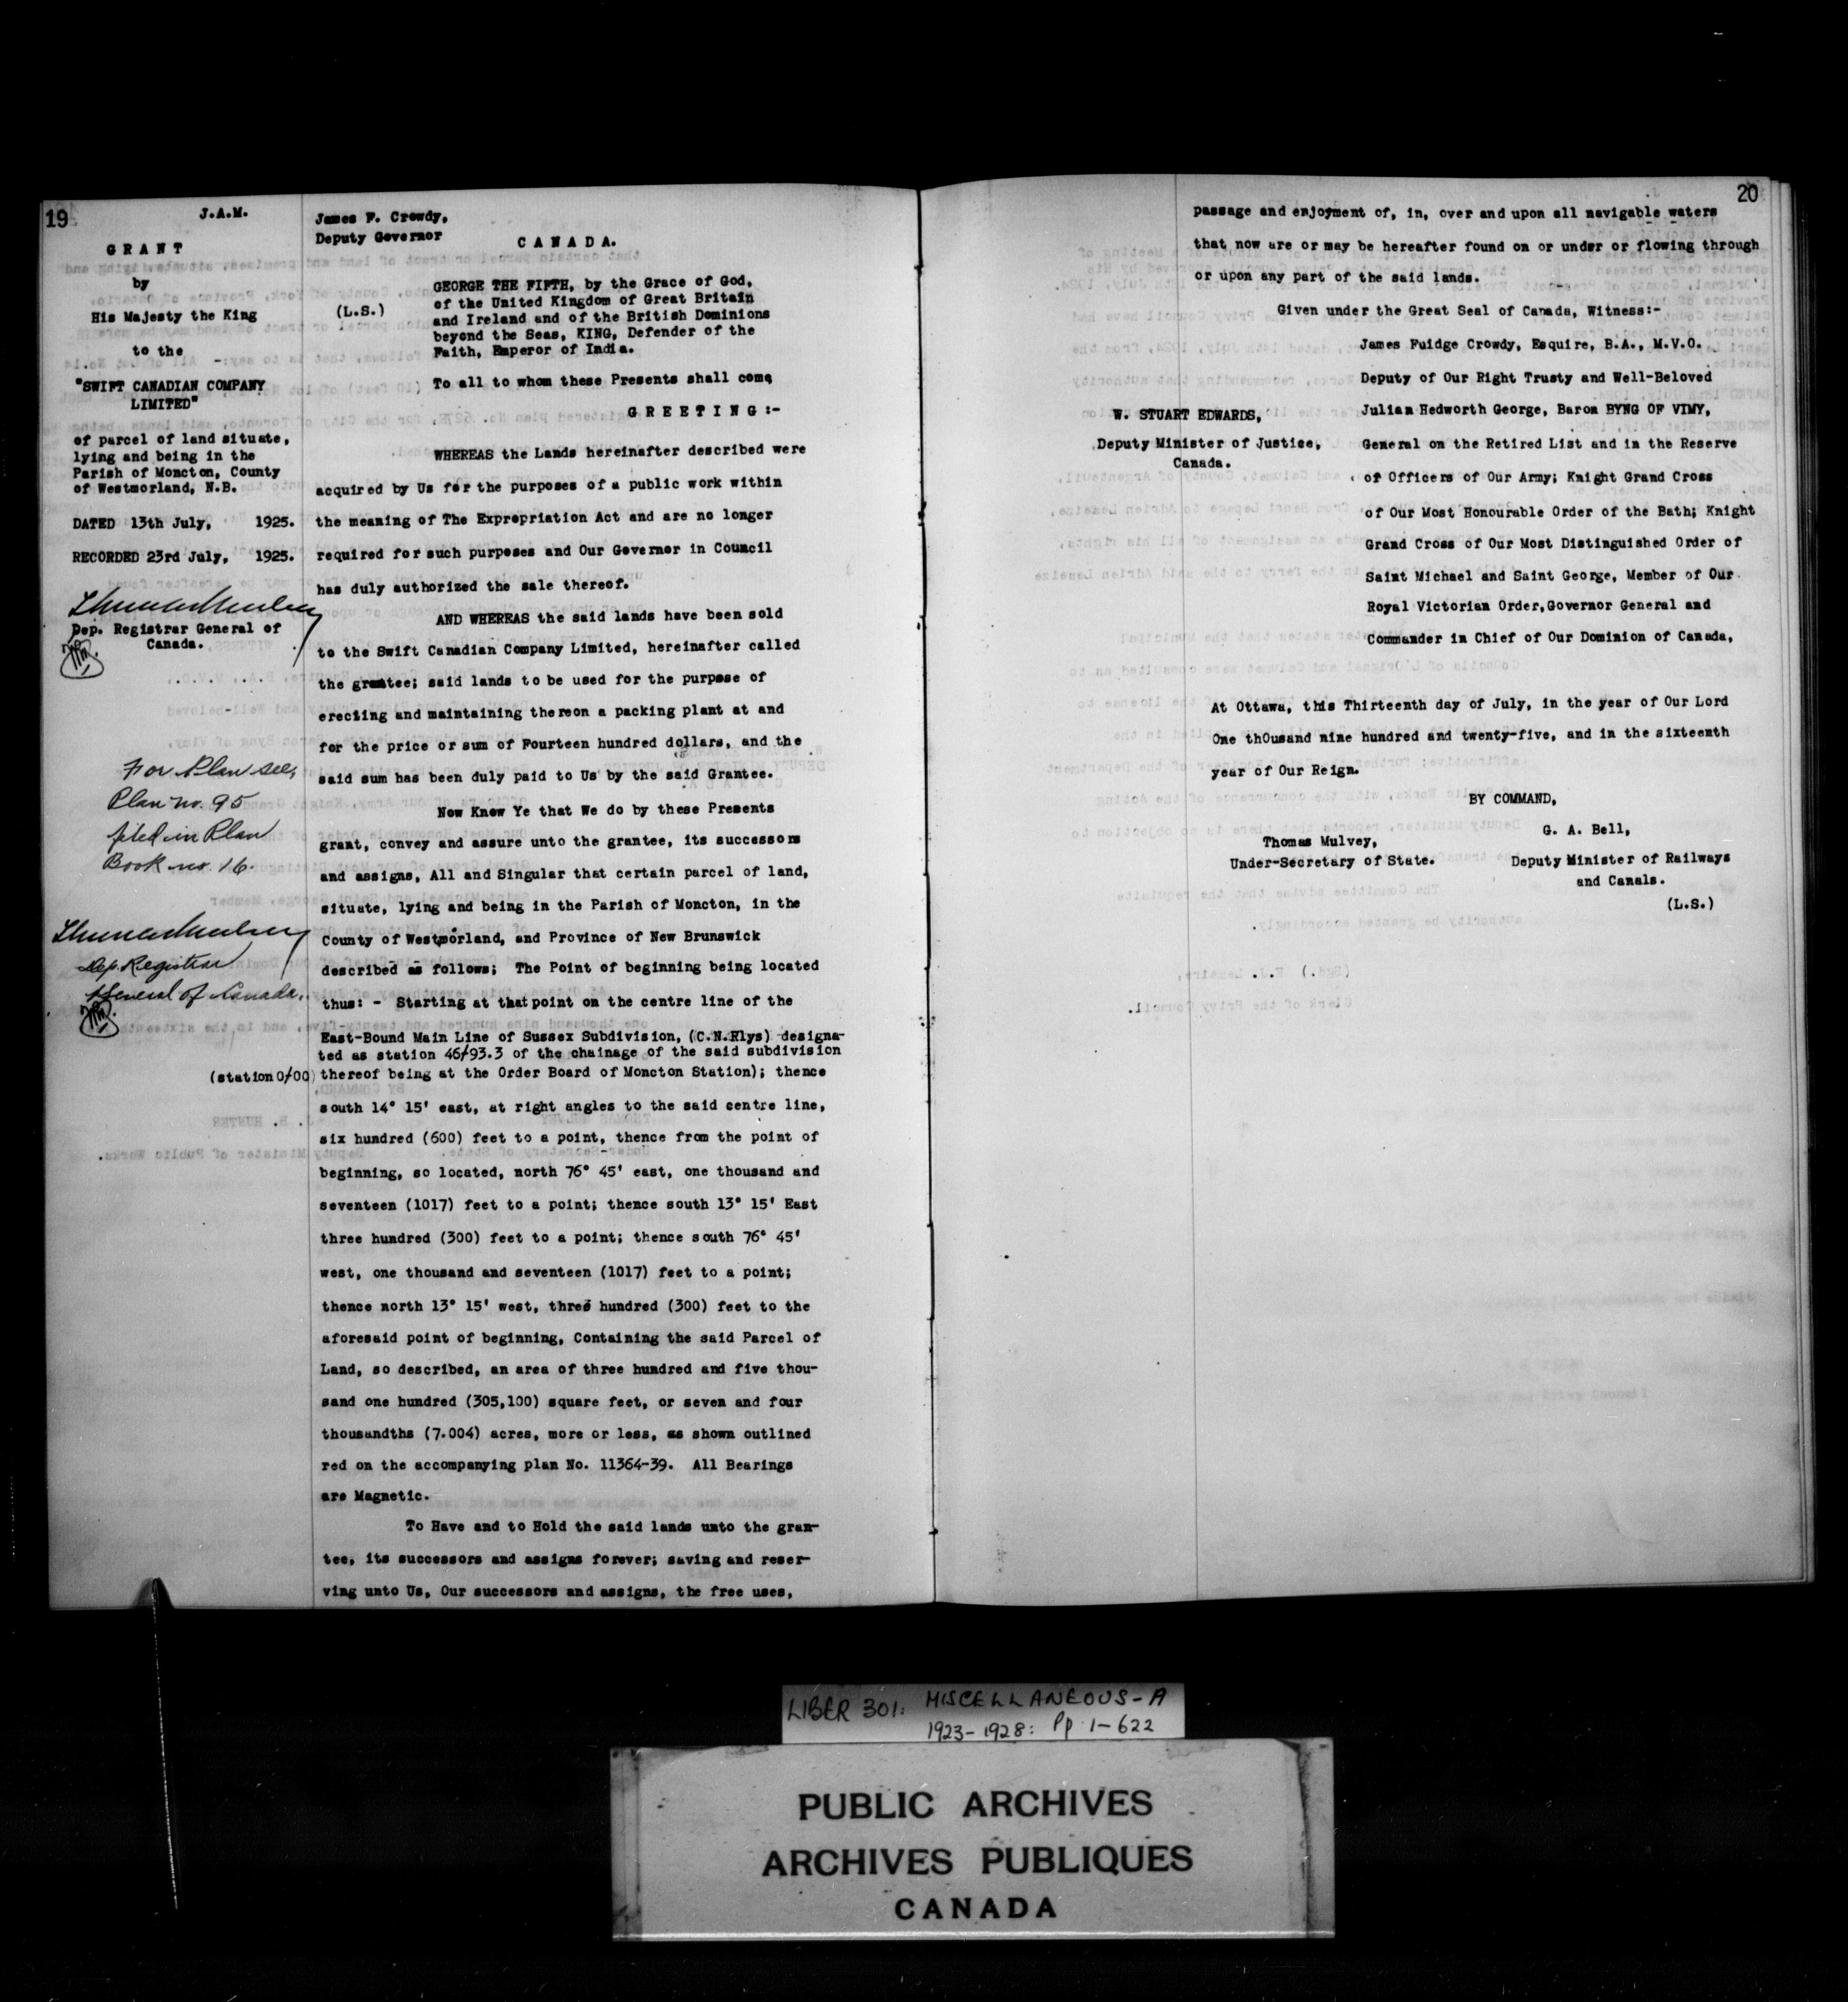 19
J.A.M.
GRANT
by
His Majesty the King
to the
"SWIFT CANADIAN COMPANY
LIMITED"
of parcel of land situate,
lying and being in the
Parish of Moncton, County
of Westmorland, N.B.
DATED 13th July, 1925.
RECORDED 23rd July, 1925.
Dep. Registrar General of
Canada.
For Plan see,
Plan no. 95
filed in Plan
Book no. 16.
Dep. Registrar
General of Canada.
(station 0/00)
James F. Crowdy,
Deputy Governor
CANADA.
(L.S.)
GEORGE THE FIFTH, by the Grace of God,
of the United Kingdom of Great Britain
and Ireland and of the British Dominions
beyond the Seas, KING, Defender of the
Faith, Emperor of India.
To all to whom these Presents shall come
GREETING:-
WHEREAS the Lands hereinafter described were
acquired by Us for the purposes of a public work within
the meaning of The Expropriation Act and are no longer
required for such purposes and Our Governor in Council
has duly authorized the sale thereof.
AND WHEREAS the said lands have been sold
to the Swift Canadian Company Limited, hereinafter called
the grantee; said lands to be used for the purpose of
erecting and maintaining thereon a packing plant at and
for the price or sum of Fourteen hundred dollars, and the
said sum has been duly paid to Us by the said Grantee.
Now Know Ye that We do by these Presents
grant, convey and assure unto the grantee, its successors
and assigns, All and Singular that certain parcel of land,
situate, lying and being in the Parish of Moncton, in the
County of Westmorland, and Province of New Brunswick
described as follows; The Point of beginning being located
thus: - Starting at that point on the centre line of the
East-Bound Main Line of Sussex Subdivision, (C.N.Rlys) designa-
ted as station 46/93.3 of the chainage of the said subdivision
thereof being at the Order Board of Moncton Station); thence
south 14° 15' east, at right angles to the said centre line,
six hundred (600) feet to a point, thence from the point of
beginning, so located, north 76° 45' east, one thousand and
seventeen (1017) feet to a point; thence south 13° 15' East
three hundred (300) feet to a point; thence south 76° 45'
west, one thousand and seventeen (1017) feet to a point;
thence north 13° 15' west, three hundred (300) feet to the
aforesaid point of beginning, Containing the said Parcel of
Land, so described, an area of three hundred and five thou-
sand one hundred (305,100) square feet, or seven and four
thousandths (7.004) acres, more or less, as shown outlined
red on the accompanying plan No. 11364-39. All Bearings
are Magnetic.
To Have and to Hold the said lands unto the gran-
tee, its successors and assigns forever; saving and reser-
ving unto Us, Our successors and assigns, the free uses,
20
passage and enjoyment of, in, over and upon all navigable waters
that now are or may be hereafter found on or under or flowing through
or upon any part of the said lands.
Given under the Great Seal of Canada, Witness:-
James Fuidge Crowdy, Esquire, B.A., M.V.O.
Deputy of Our Right Trusty and Well-Beloved
Julian Hedworth George, Baron BYNG OF VIMY,
General on the Retired List and in the Reserve
of Officers of Our Army; Knight Grand Cross
of Our Most Honourable Order of the Bath; Knight
Grand Cross of Our Most Distinguished Order of
Saint Michael and Saint George, Member of Our
Royal Victorian Order, Governor General and
Commander in Chief of Our Dominion of Canada,
W. STUART EDWARDS,
Deputy Minister of Justice,
Canada.
At Ottawa, this Thirteenth day of July, in the year of Our Lord
One thOusand nine hundred and twenty-five, and in the sixteenth
year of Our Reign.
BY COMMAND,
Thomas Mulvey,
Under-Secretary of State.
G. A. Bell,
Deputy Minister of Railways
and Canals.
(L.S.)
LIBER 301: MISCELLANEOUS-A
1923-1928: Pp 1-622
PUBLIC ARCHIVES
ARCHIVES PUBLIQUES
CANADA